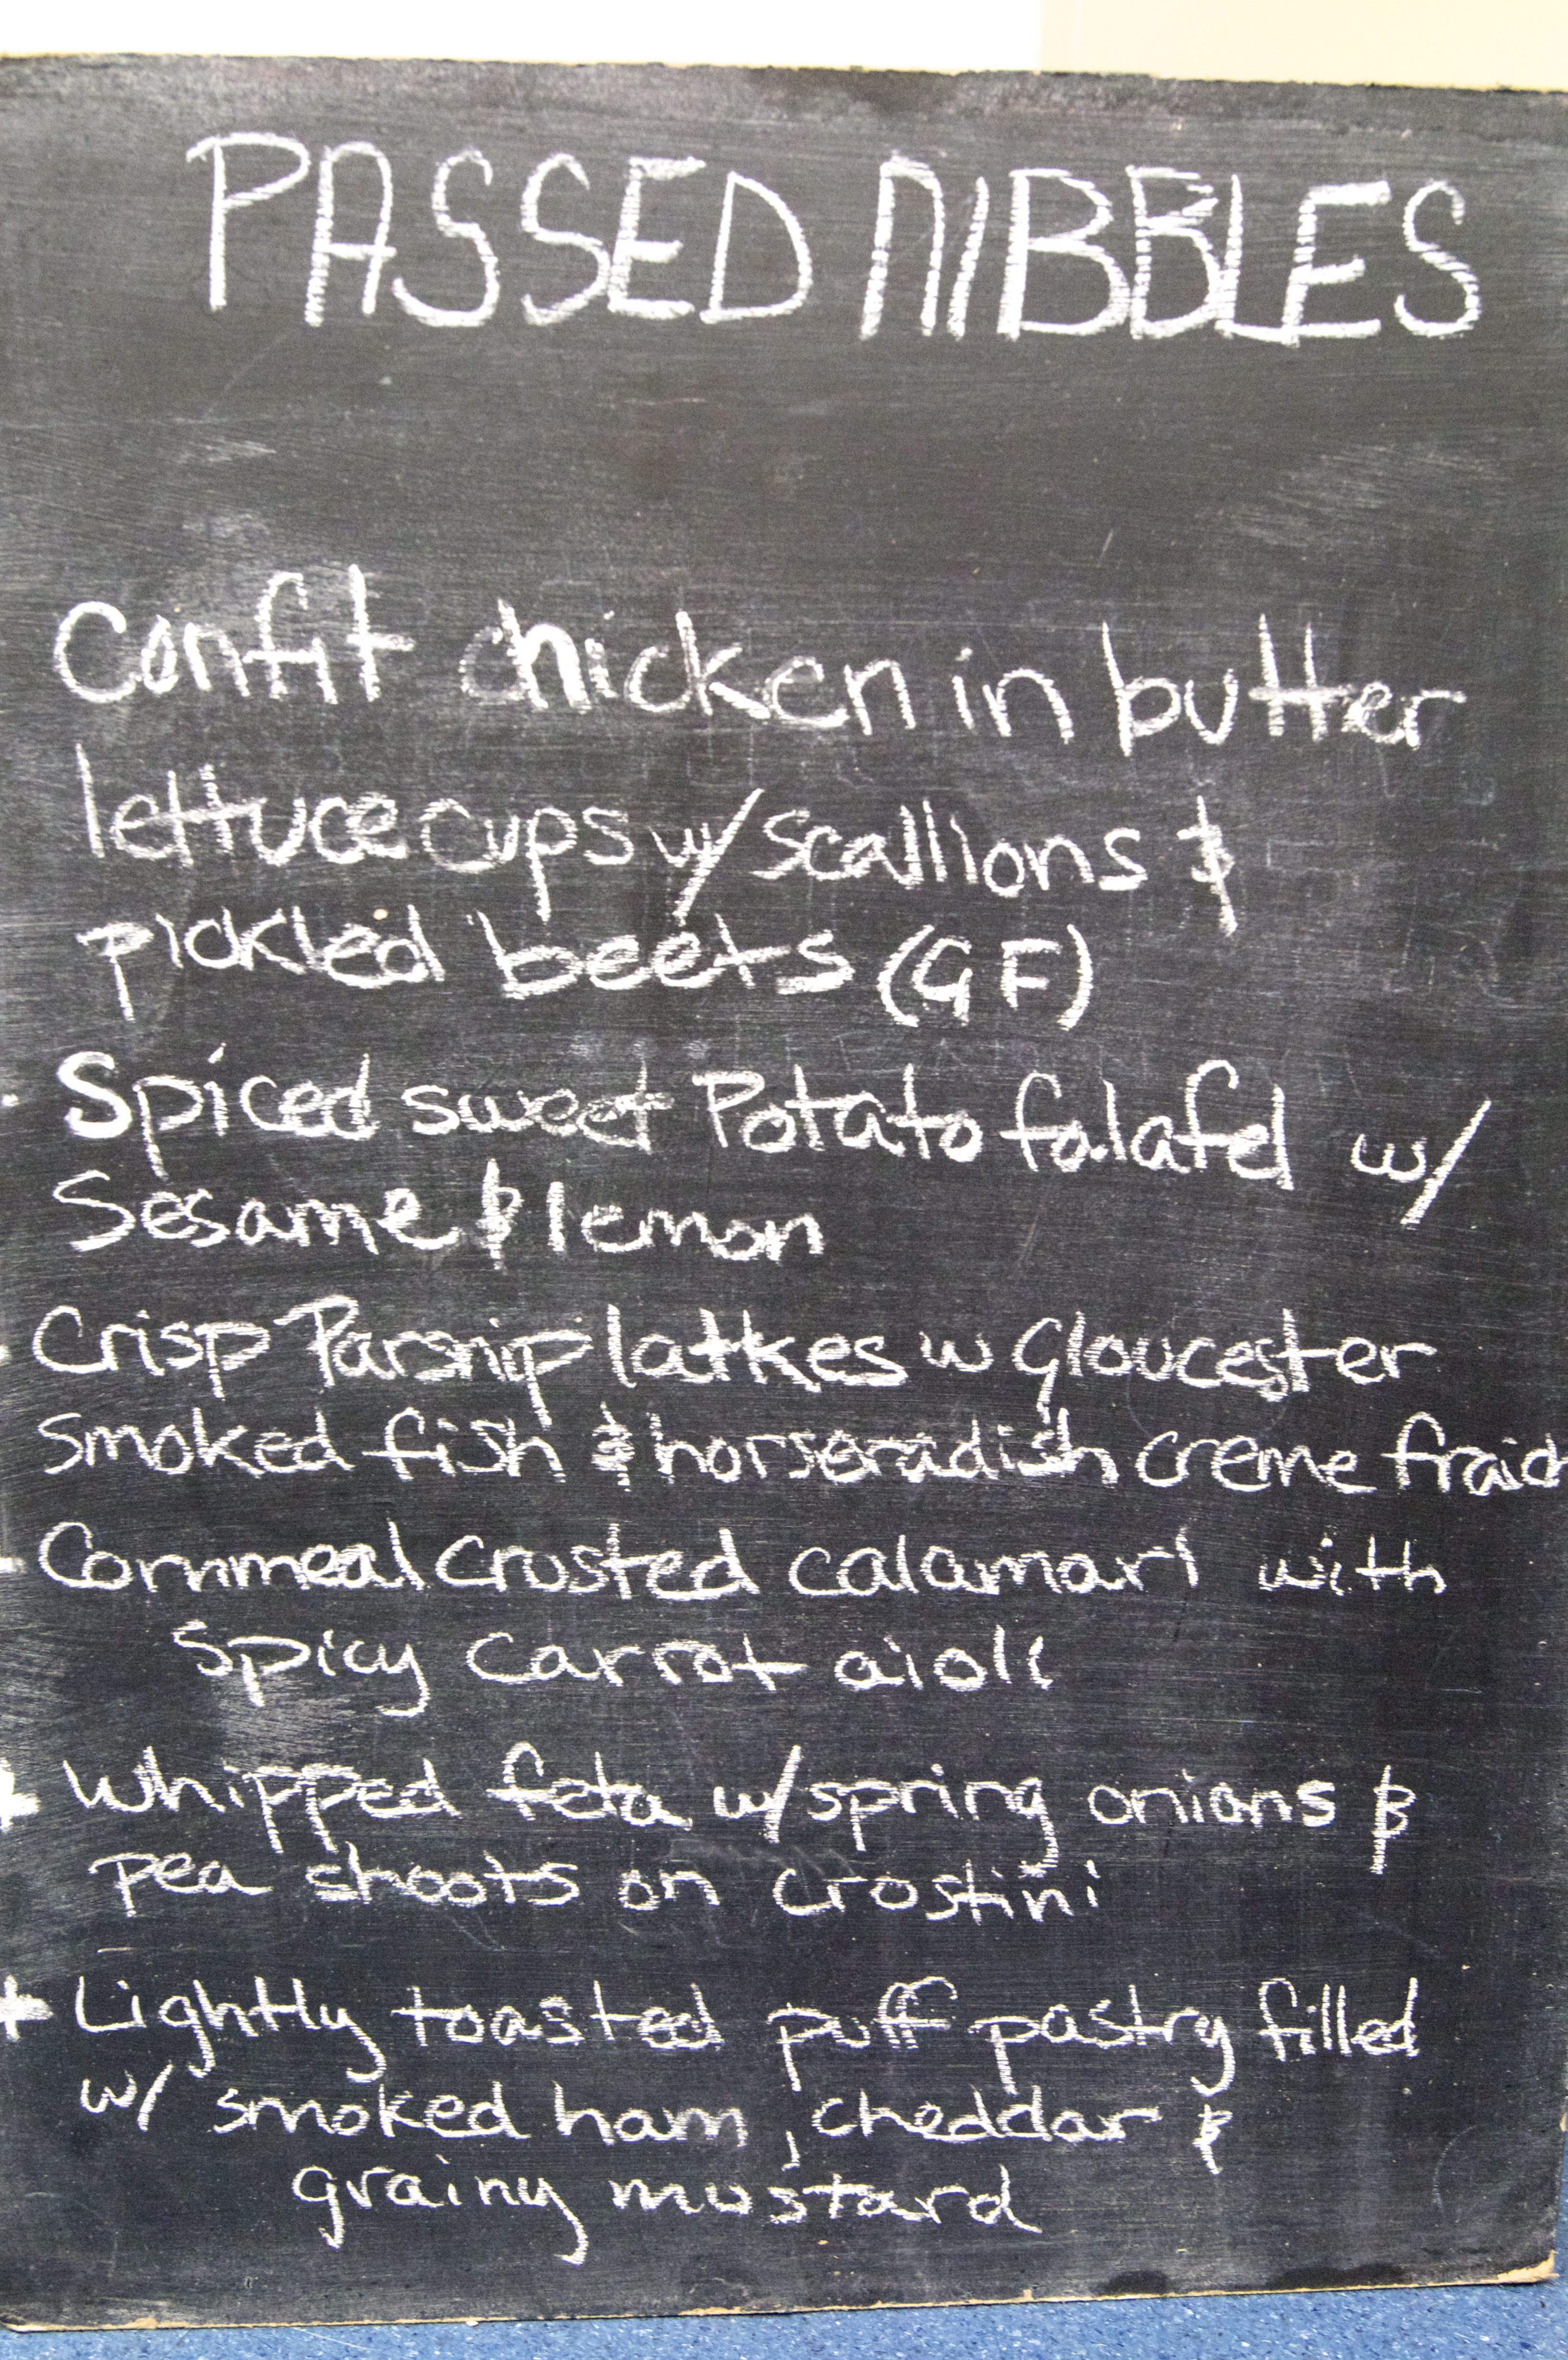 PASSED NIBBLES
Confit chicken in butter
lettuce cups w/ scallions &
pickled beets (GF)
· Spiced sweet Potato falafel w/
Sesame & lemon
- Crisp Parsnip latkes w Gloucester
smoked fish & horseradish creme fraich
- Cornmeal crusted calamari with
spicy carrot aioli
* Whipped feta w/ spring onions &
pea shoots on crostini
* Lightly toasted puff pastry filled
w/ smoked ham, cheddar &
grainy mustard